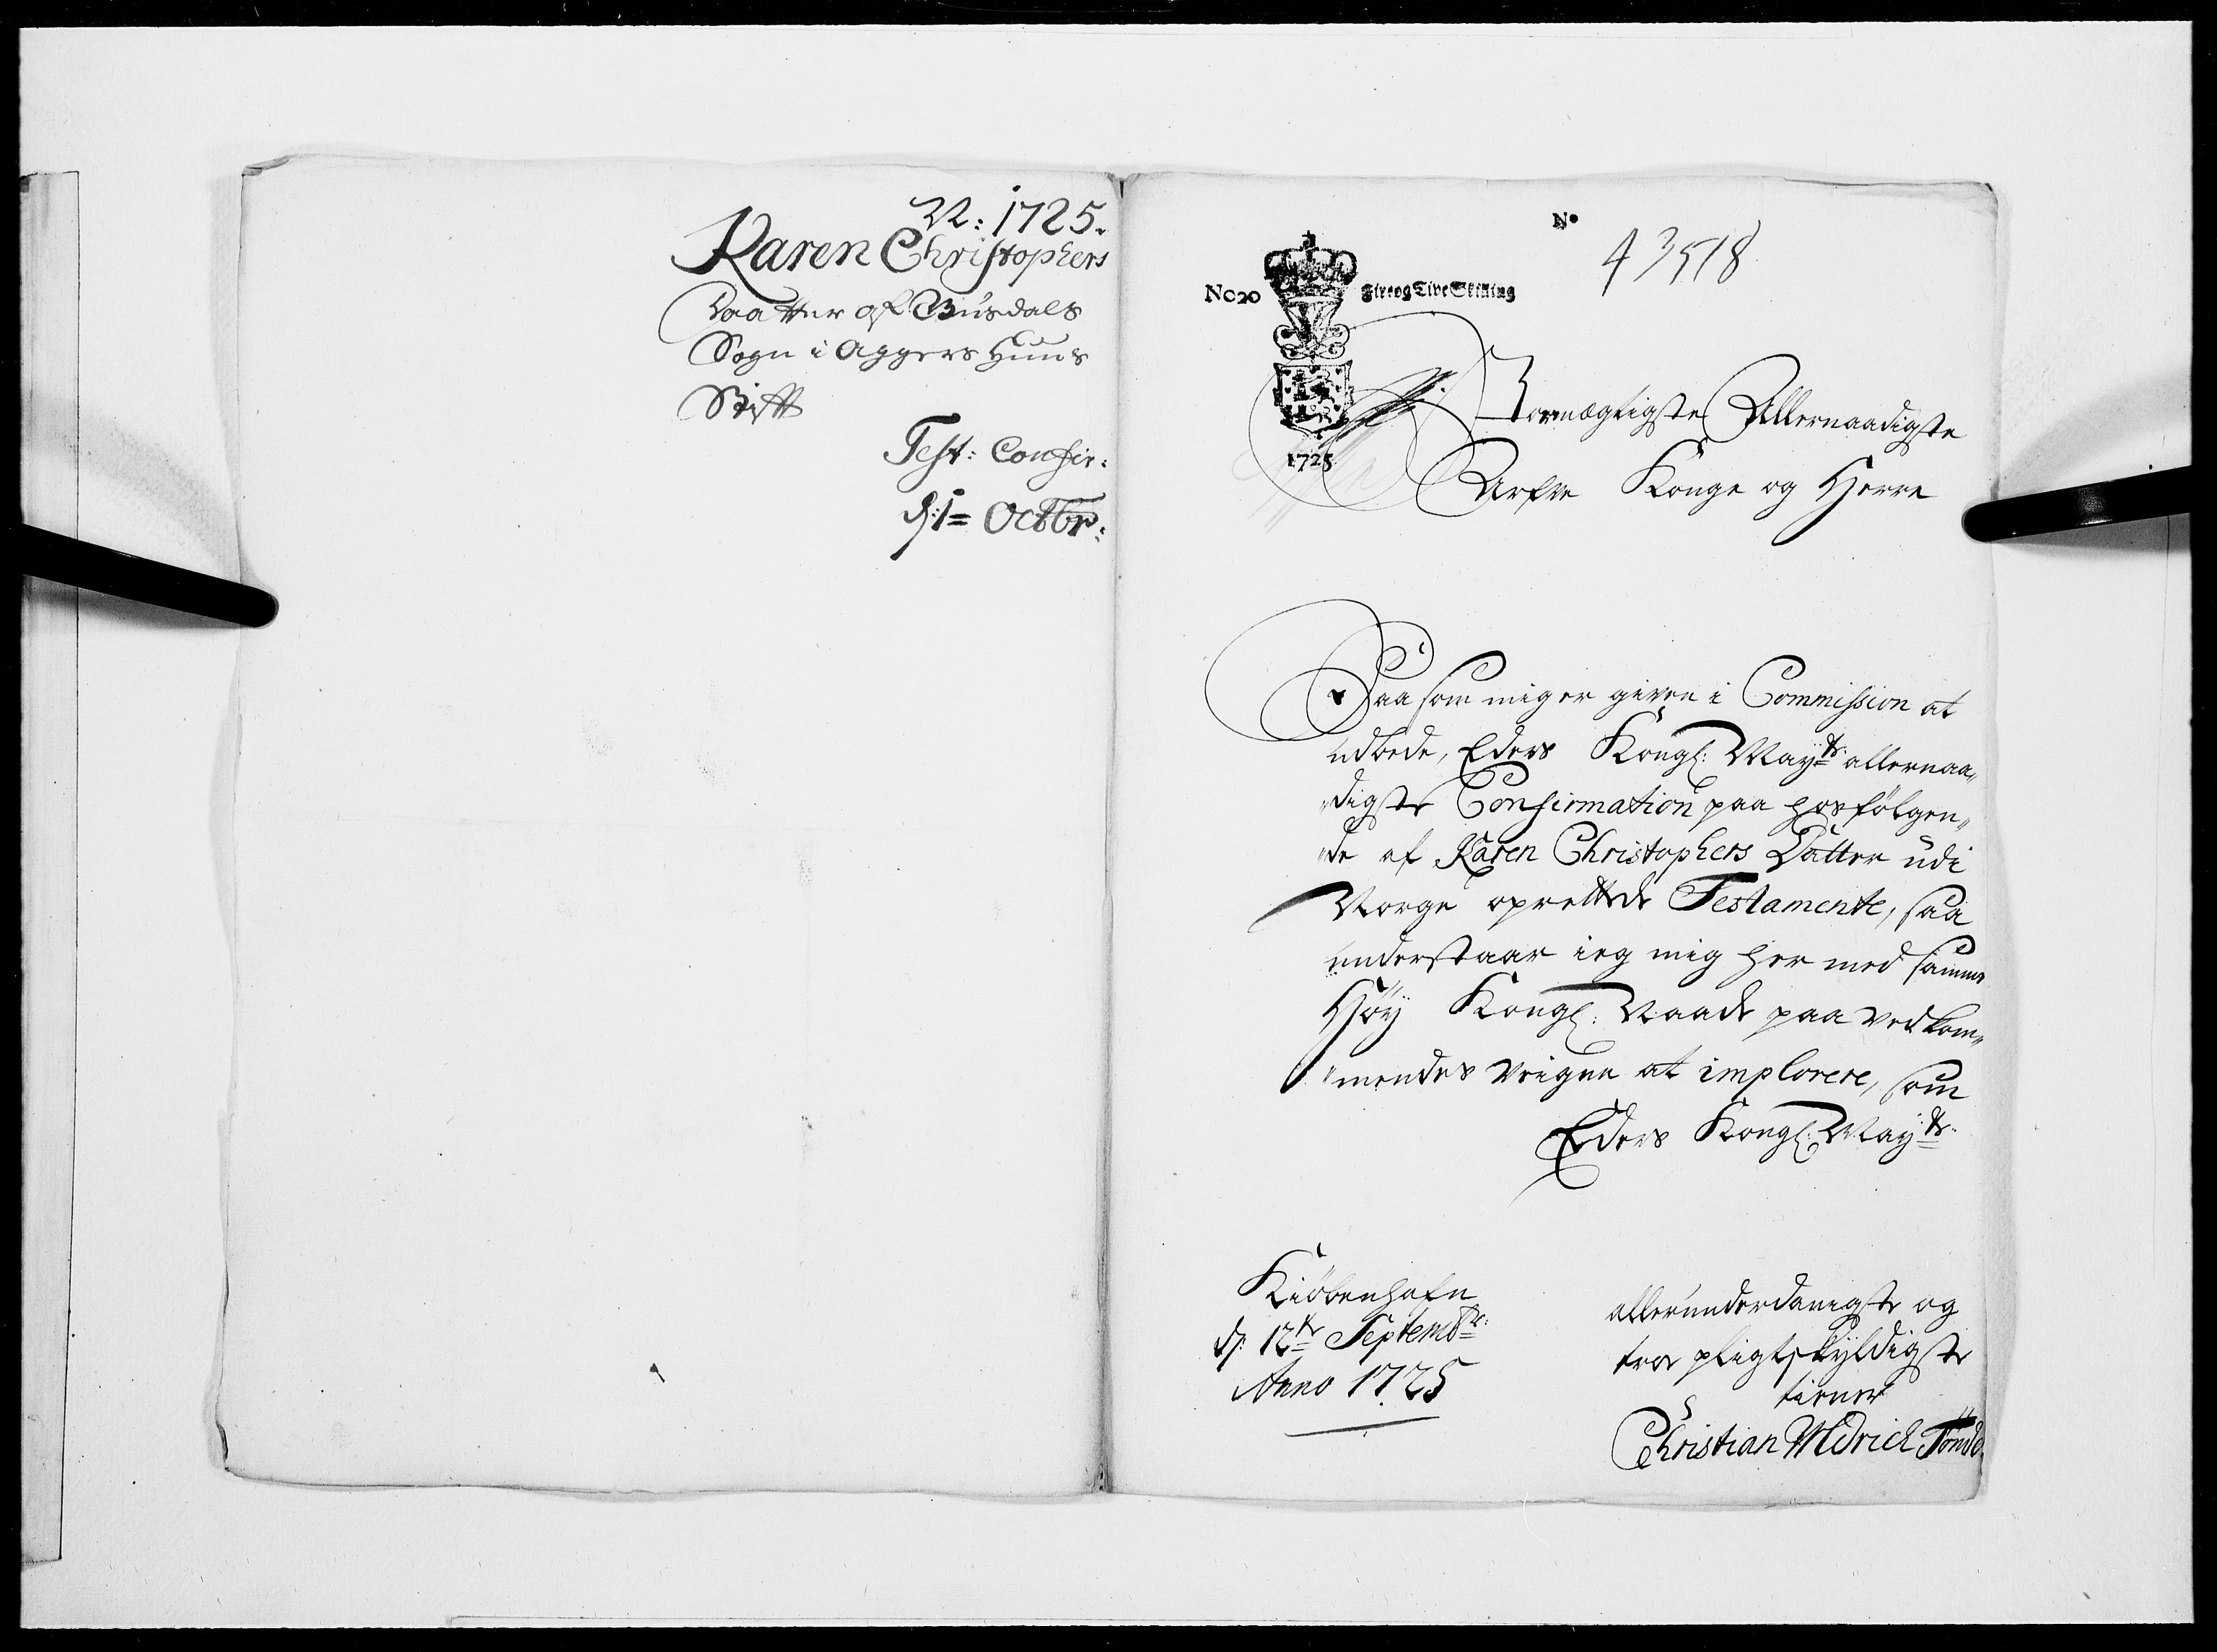 N: 1725.
Karen Christophers
Daatter af Busdals
Sogn i Aggershuus
Stift
Test: Confir:
d: 1= Octbr:
No
43518
No 20
Fire og Tive Skilling
1725
Stormægtigste Allernaadigste
Arfve Konge og Herre
Saasom mig er given i Commission at
udbede, Eders Kongl: Mayts allernaa„
„digste Confirmation paa hosfölgen„
„de af Karen Christophers Datter udi
Norge oprettede Testamente, saa
understaar ieg mig her med samme
Höy Kongl: Naade paa vedkom„
„mendes veigne at implorere, som
Eders Kongl: Mayts
Kiöbenhafn
d: 12te Septembr:
Anno 1725
allerunderdanigste og
troe pligtskyldigste
tiener
Christian Uldrich Tönde